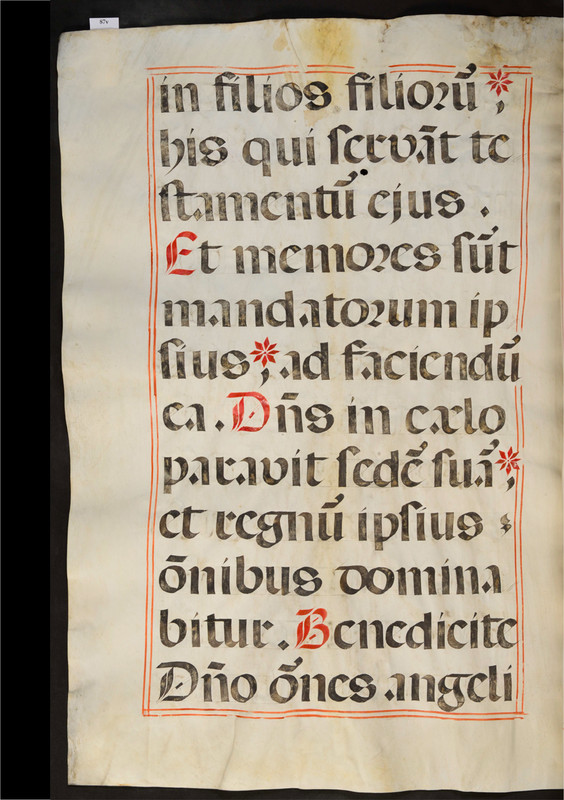 87v
in filios filioꝛū * ;
his qui ſervāt te
ſtamentū ejus .
Et memoꝛes ſūt
mandatoꝛum ip
ſius * ; ad faciendū
ea . Dn̄s in cælo
paravit ſedē ſuā * ;
et regnū ipſius
ōnibus domina
bitur . Benedicite
Dn̄o ōnes angeli